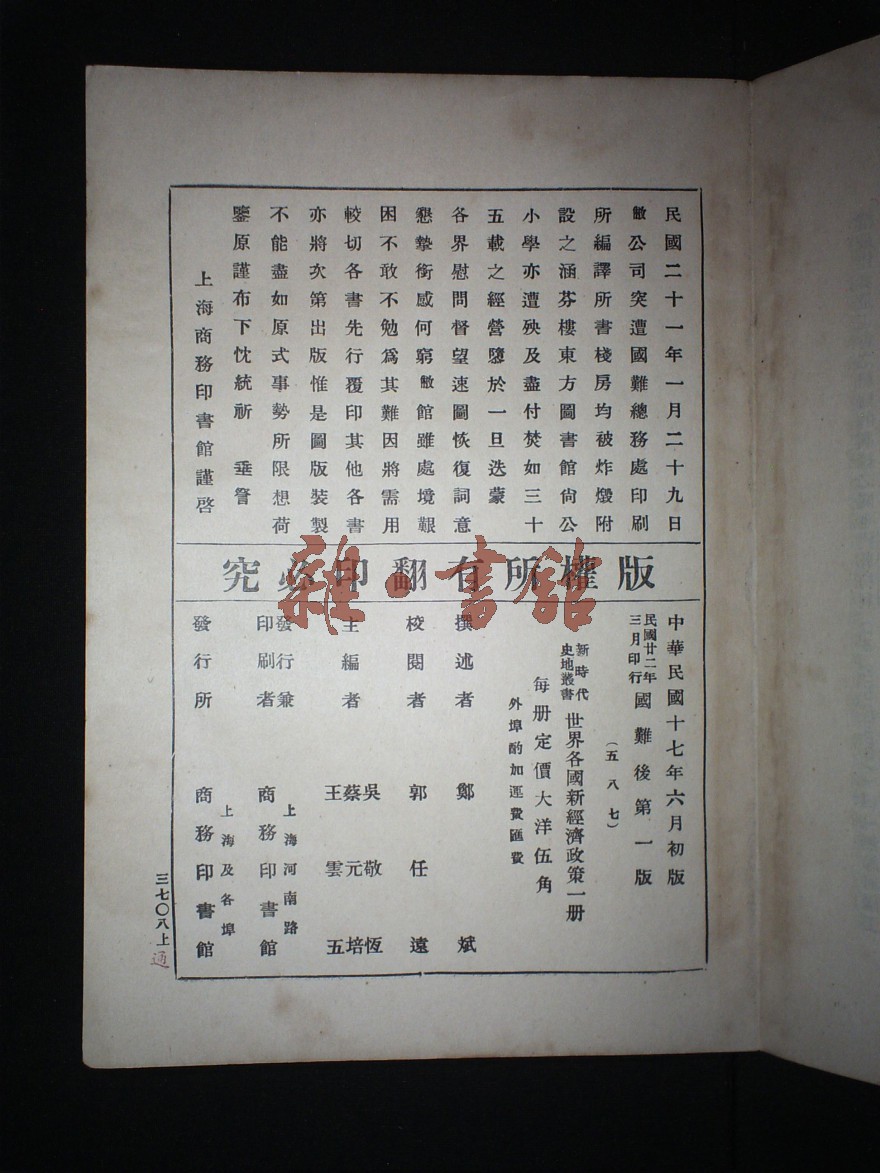 民國二十一年一月二十九日
敝公司突遭國難總務處印刷
所編譯所書棧房均被炸燬附
設之涵芬樓東方圖書館尙公
小學亦遭殃及盡付焚如三十
五載之經營隳於一旦迭蒙
各界慰問督望速圖恢復詞意
懇摯銜感何窮敝館雖處境艱
困不敢不勉爲其難因將需用
較切各書先行覆印其他各書
亦將次第出版惟是圖版裝製
不能盡如原式事勢所限想荷
鑒原謹布下忱統祈 垂詧
上海商務印書館謹啓
版權所有翻印必究
雜·書館
中華民國十七年六月初版
民國廿二年三月印行國難後第一版
（五八七）
新時代史地叢書世界各國新經濟政策一册
每册定價大洋伍角
外埠酌加運費匯費
撰述者 鄭斌
校閱者 郭任遠
主編者 吳敬恆 蔡元培 王雲五
發行兼印刷者 上海河南路 商務印書館
發行所 上海及各埠 商務印書館
三七〇八上
通